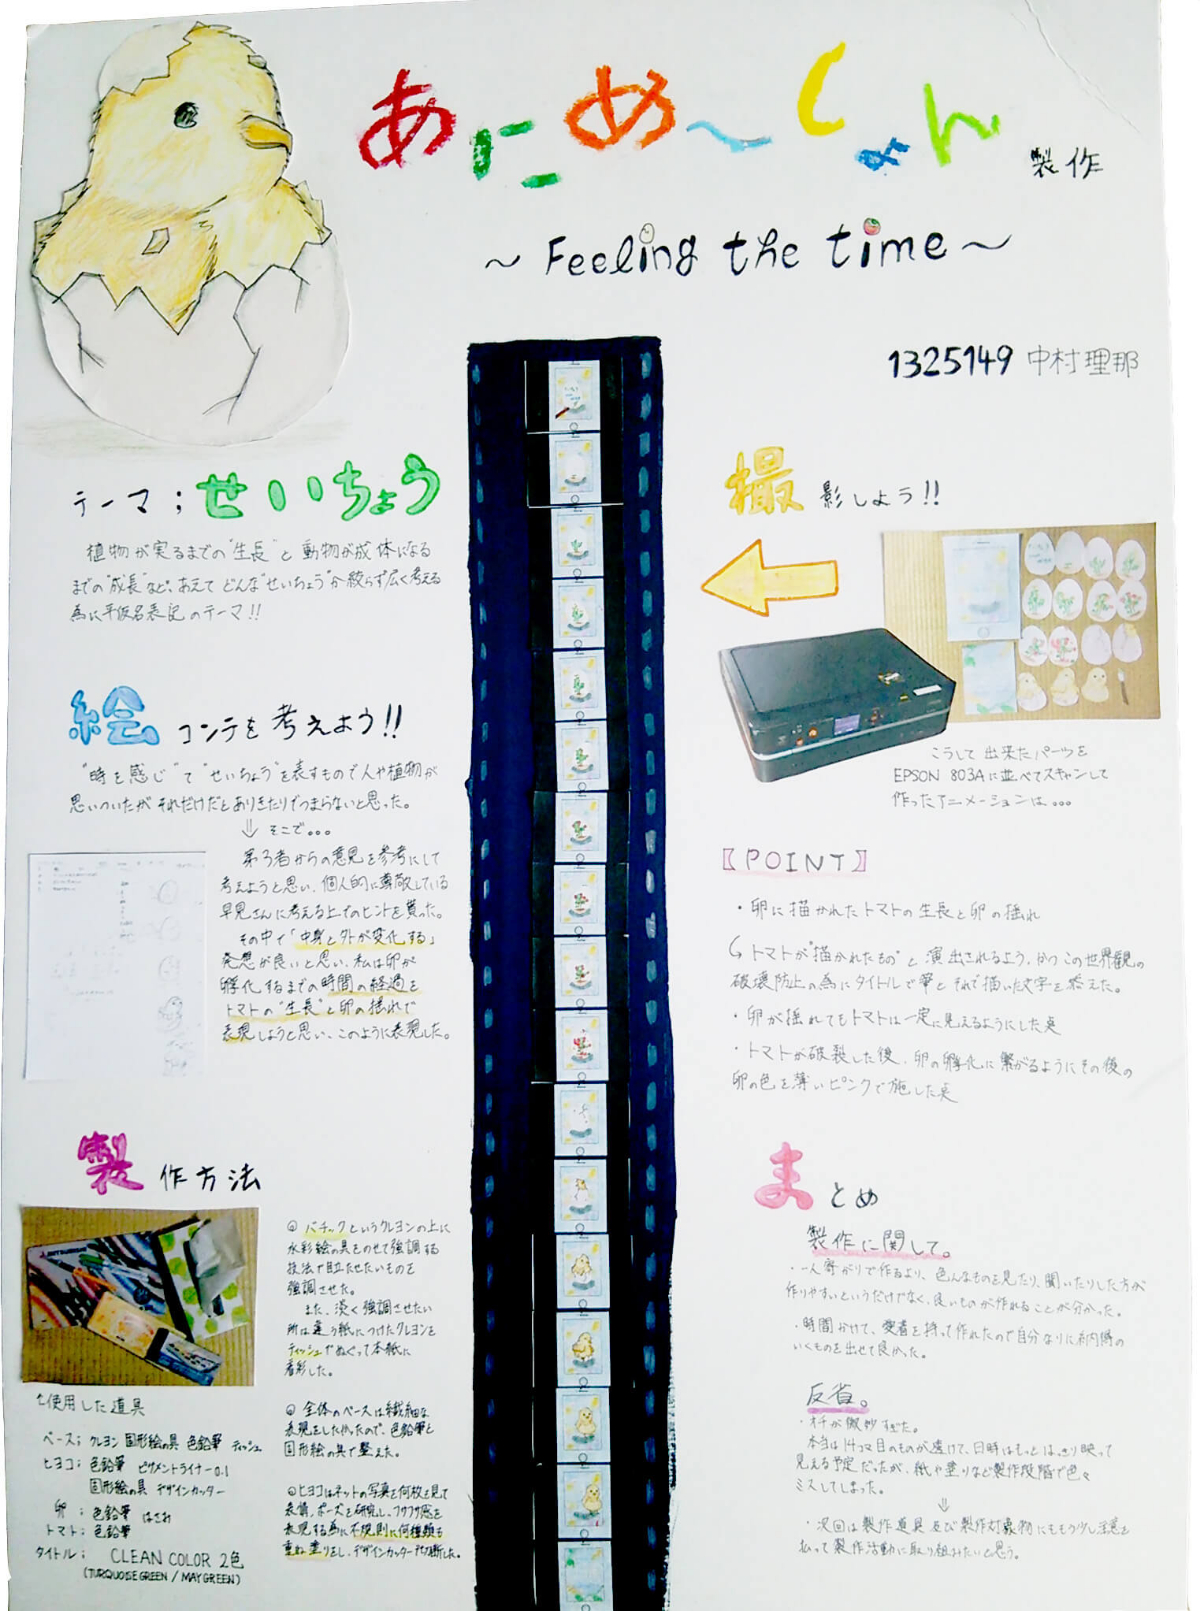 あにめ〜しょん 製作
〜 Feeling the time 〜
1325149 中村理那
テーマ；せいちょう
植物が実るまでの"生長"と動物が成体になる
までの"成長"など、あえてどんな"せいちょう"か絞らず広く考える
為に平仮名表記のテーマ!!
絵コンテを考えよう!!
"時を感じ"て"せいちょう"を表すもので人や植物が
思いついたがそれだけだとありきたりでつまらないと思った。
⇓ そこで。。。
第3者からの意見を参考にして
考えようと思い、個人的に尊敬している
早見さんに考える上でのヒントを貰った。
その中で「中身と外が変化する」
発想が良いと思い、私は卵が
孵化するまでの時間の経過を
トマトの"生長"と卵の揺れで
表現しようと思い、このように表現した。
製作方法
↑使用した道具
ベース；クレヨン 固形絵の具 色鉛筆 ティッシュ
ヒヨコ：色鉛筆 ピグメントライナー0.1
固形絵の具 デザインカッター
卵：色鉛筆 はさみ
トマト：色鉛筆
タイトル： CLEAN COLOR 2色
(TURQUOISE GREEN / MAY GREEN)
◎ バチックというクレヨンの上に
水彩絵の具をのせて強調する
技法で目立たせたいものを
強調させた。
また、淡く強調させたい
所は違う紙につけたクレヨンを
ティッシュでぬぐって本紙に
着彩した。
◎ 全体のベースは繊細な
表現をしたかったので、色鉛筆と
固形絵の具で整えた。
◎ヒヨコはネットの写真を何枚も見て
表情、ポーズを研究し、フワフワ感を
表現する為に不規則に何種類も
重ね塗りをし、デザインカッターで切断した。
撮影しよう!!
こうして出来たパーツを
EPSON 803Aに並べてスキャンして
作ったアニメーションは。。。
【POINT】
・卵に描かれたトマトの生長と卵の揺れ
↳トマトが"描かれたもの"と演出されるよう、かつこの世界観の
破壊防止の為にタイトルで筆とそれで描いた文字を添えた。
・卵が揺れてもトマトは一定に見えるようにした点
・トマトが破裂した後、卵の孵化に繋がるようにその後の
卵の色を薄いピンクで施した点
まとめ
製作に関して。
・一人寄がりで作るより、色んなものを見たり、聞いたりした方が
作りやすいというだけでなく、良いものが作れることが分かった。
・時間かけて、愛着を持って作れたので自分なりに納得の
いくものを出せて良かった。
反省。
・オチが微妙すぎた。
本当は14コマ目のものが透けて、日時はもっとはっきり映って
見える予定だったが、紙や塗りなど製作段階で色々
ミスしてしまった。
⇓
・次回は製作道具及び製作対象物にももう少し注意を
払って製作活動に取り組みたいと思う。